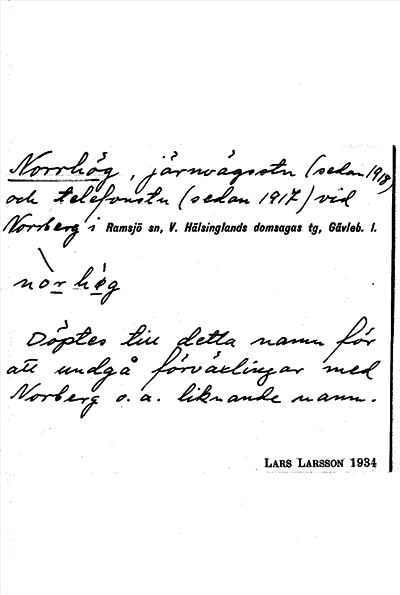 Norrhög, järnvägsstn (sedan 1918)
och telefonstn (sedan 1917) vid
Norrberg i Ramsjö sn, V. Hälsinglands domsagas tg, Gävleb. l.
nòr hög
Döptes till detta namn för
att undgå förväxlingar med
Norberg o. a. liknande namn.
LARS LARSSON 1934